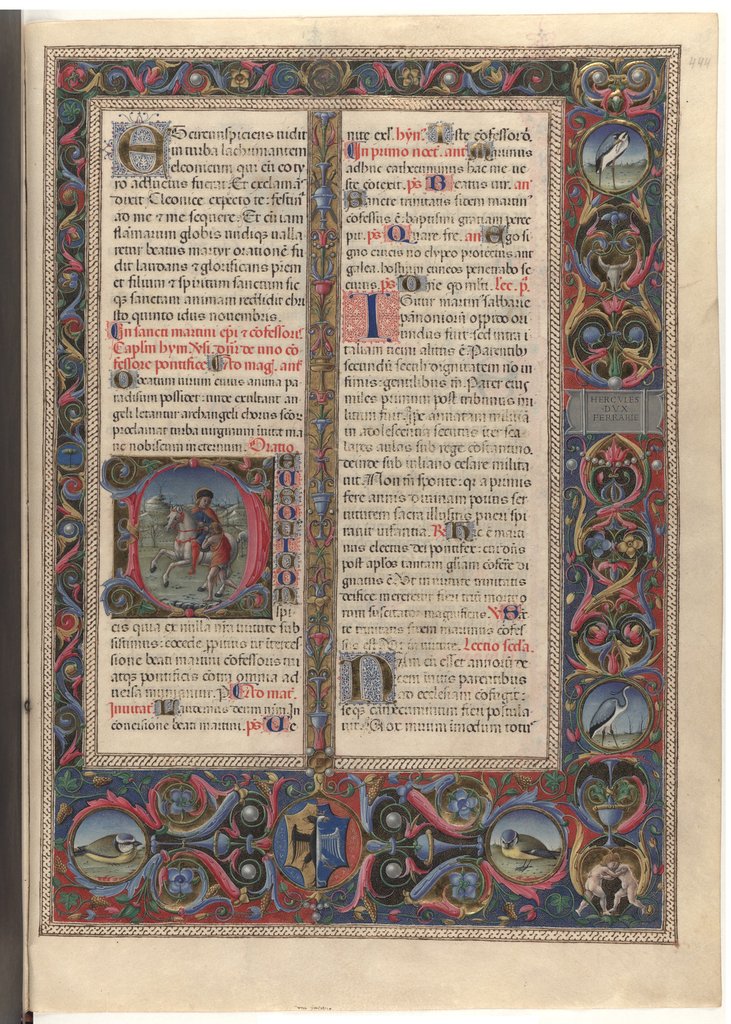 Es circunspiciens uidit
in turba lachrimantem
eleonicum qui en coty
ro adductus fuerat. Et exclama
dixit Eleonice expecto te: festia
ad me & me sequere. Et cu iam
flamarum globis undiqz ualla
retur beatus martyr oratione fu
dit laudans & glorificans prem
et filium & spiritum sanctum sic
qz sanctam animam reddidit chri
sto quinto idus nouembris.
In sancti martini epi & cofessoris
Caplm hym. Vsi. dnr de uno co
fessore pontifice Ad mag. ant
O beatum uirum cuius anima pa
radisum possidet: unde exultant an
geli letantur archangeli chorus scor
proclamat turba uirginum inuitat ma
ne nobiscum in eternum. Oratio
DEUS QUI CON
spi
cis quia ex nulla nra uirtute sub
sistimus: cocede ppitius ut iterces
sione beati martini cofessoris tui
atqz pontificis cotra omnia ad
uersa muniamur. p Ad mat.
Inuitat. Laudemus deum nrm In
conuersione beati martini. ps Ue
nite exl. hyn. Iste cofessor o.
In primo noct. ant Martinus
adhuc catecuminus hac me ue
ste cotexit. ps Beatus uir. an
Sancte trinitatis fidem martin
cofessus e: baptismi gratiam perce
pit. ps Quare fre. an Ego si
gno crucis no clypeo protectus aut
galea hostium cuneos penetrabo se
curus. ps Dne qd mlti. Lec. p.
Igitur martin sabbarie
panoniorum oppido ori
undus fuit: sed intra i
taliam ticini altus e Parentib
secundu seculi dignitatem no in
fimis: gentilibus tn Pater eius
miles primum post tribunus mi
litum fuit. Ipse armatam militia
in adolescentia secutus iter sco
lares aulas sub rege costantino,
deinde sub iuliano cesare milita
uit Non tn sponte: qa a primis
fere annis diuinam potius ser
uitutem sacra illustris pueri spi
rauit infantia. R Hic e marti
nus electus dei pontifex: cui dns
post aplos tantam gram cofere di
gnatus e. Vt in uirtute trinitatis
deifice mereretur fieri triu mortuo
rum suscitator magnificus. V San
cte trinitatis fidem martinus cofes
sus est. Vt in uirtute. Lectio scda.
Nam cu esset annoru de
cem inuitis parentibus
ad ecclesiam cofugit:
seqz catecuminum fieri postula
uit. Mox mirum in modum totus
HERCVLES
DVX
FERRARIE
444